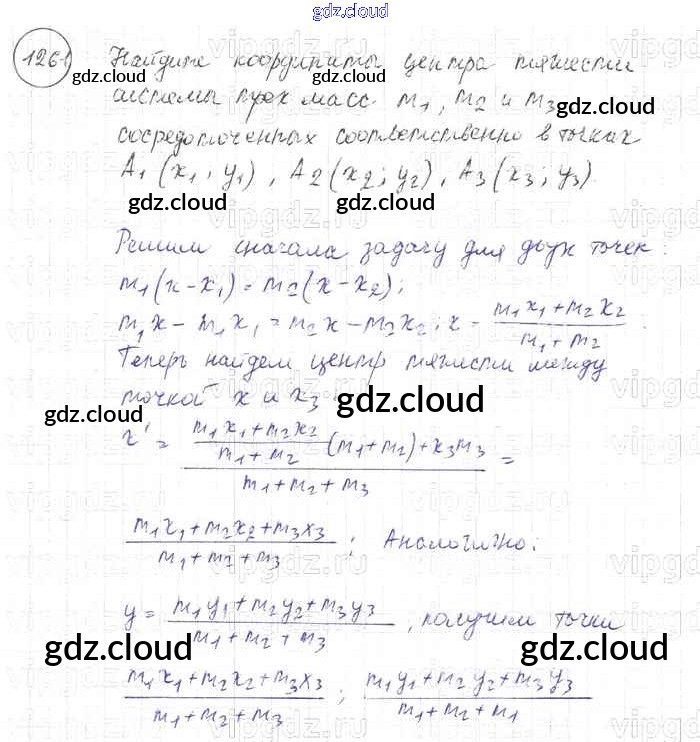 gdz.cloud
1261 Найдите координаты центра тяжести
gdz.cloud gdz.cloud gdz.cloud
системы трех масс m1, m2 и m3
gdz.cloud
сосредоточенных соответственно в точках
A1 (x1; y1), A2 (x2; y2), A3 (x3; y3).
gdz.cloud gdz.cloud gdz.cloud
Решим сначала задачу для двух точек:
m1(x-x1) = m2(x-x2);
gdz.cloud gdz.cloud
m1x - m1x1 = m2x - m2x2; x = (m1x1+m2x2)/(m1+m2).
Теперь найдем центр тяжести между
точкой x и x3:
gdz.cloud gdz.cloud
x' = ((m1x1+m2x2)/(m1+m2) (m1+m2)+x3m3)/(m1+m2+m3) =
(m1x1+m2x2+m3x3)/(m1+m2+m3); Аналогично:
gdz.cloud gdz.cloud
y = (m1y1+m2y2+m3y3)/(m1+m2+m3), получим точки
gdz.cloud gdz.cloud
(m1x1+m2x2+m3x3)/(m1+m2+m3); (m1y1+m2y2+m3y3)/(m1+m2+m1)